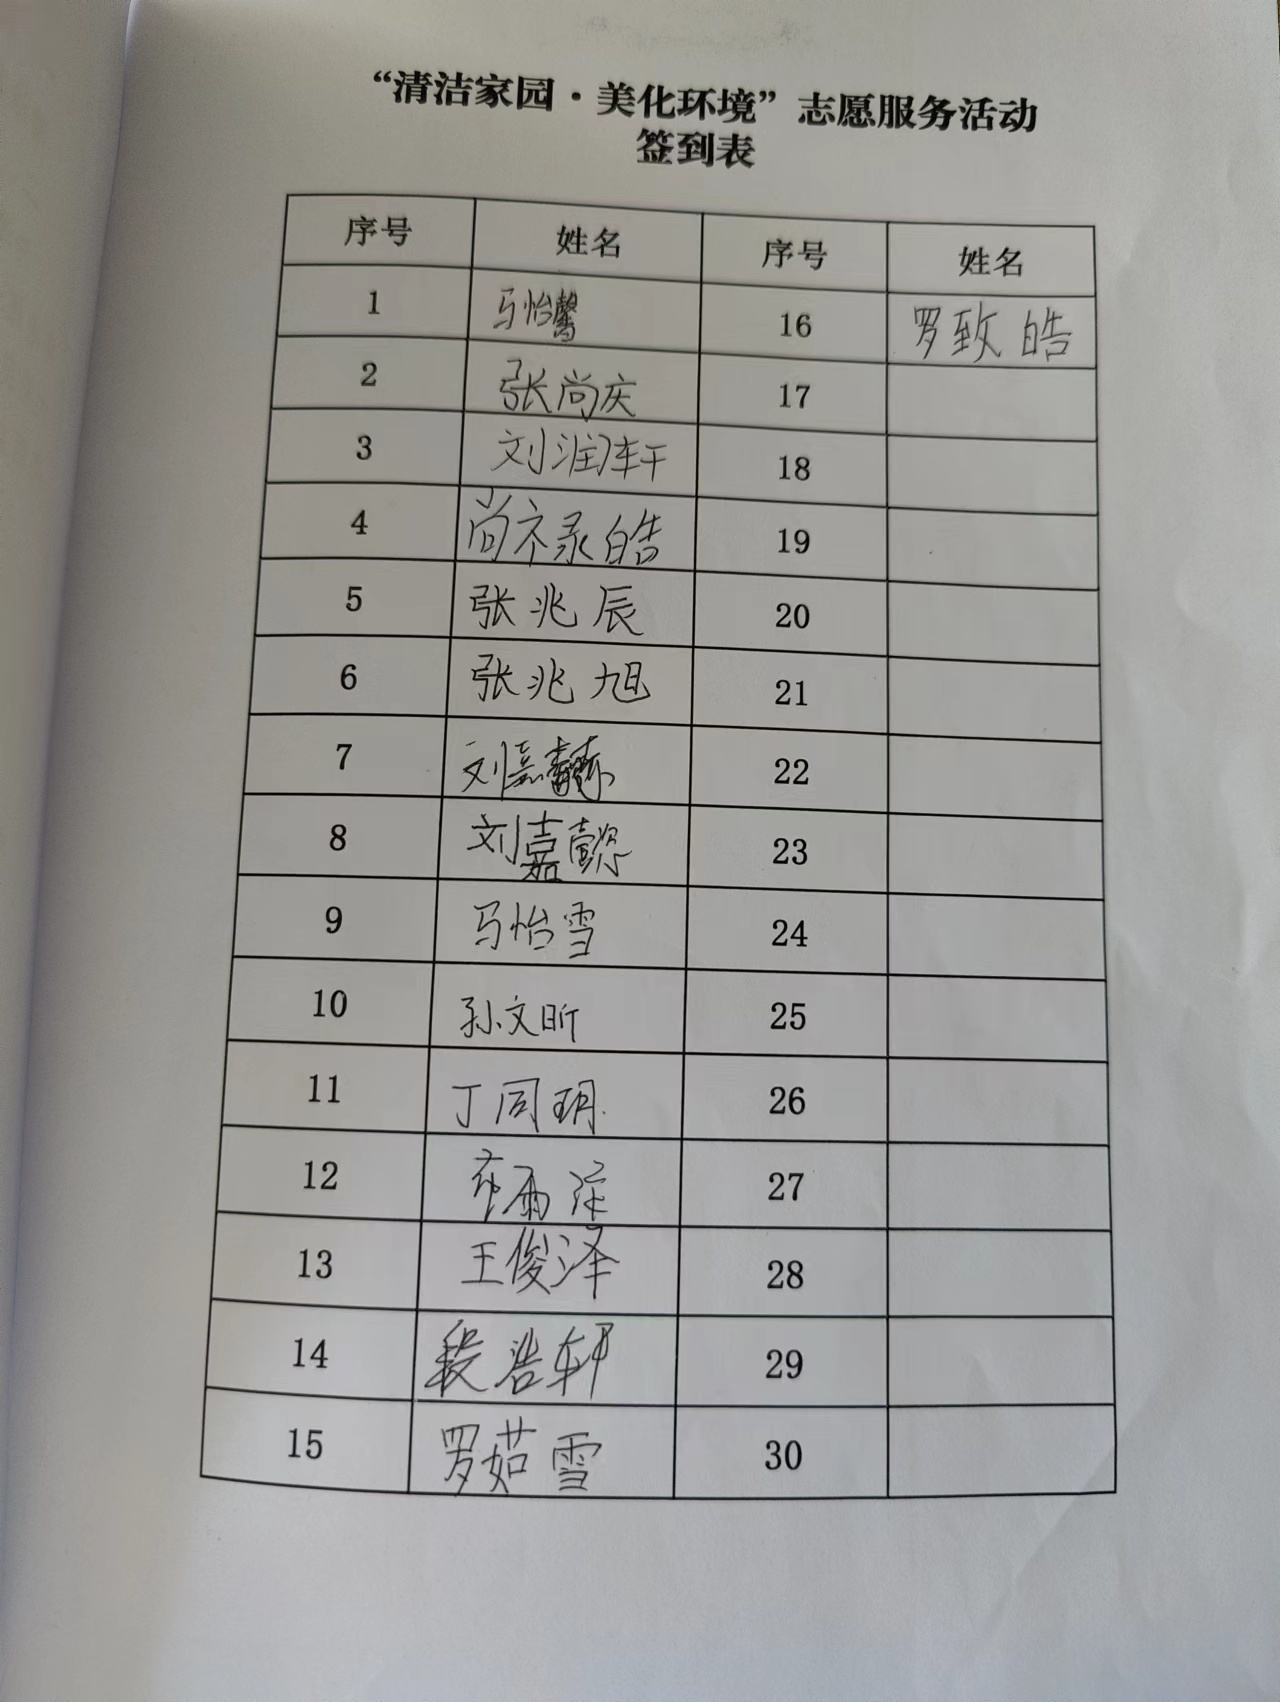 “清洁家园·美化环境”志愿服务活动
签到表
序号 姓名 序号 姓名
1 马怡馨 16 罗致皓
2 张尚庆 17
3 刘润轩 18
4 尚禄皓 19
5 张兆辰 20
6 张兆旭 21
7 刘嘉 22
8 刘嘉懿 23
9 马怡雪 24
10 孙文昕 25
11 丁同玥 26
12 雨 27
13 王俊泽 28
14 段浩轩 29
15 罗茹雪 30